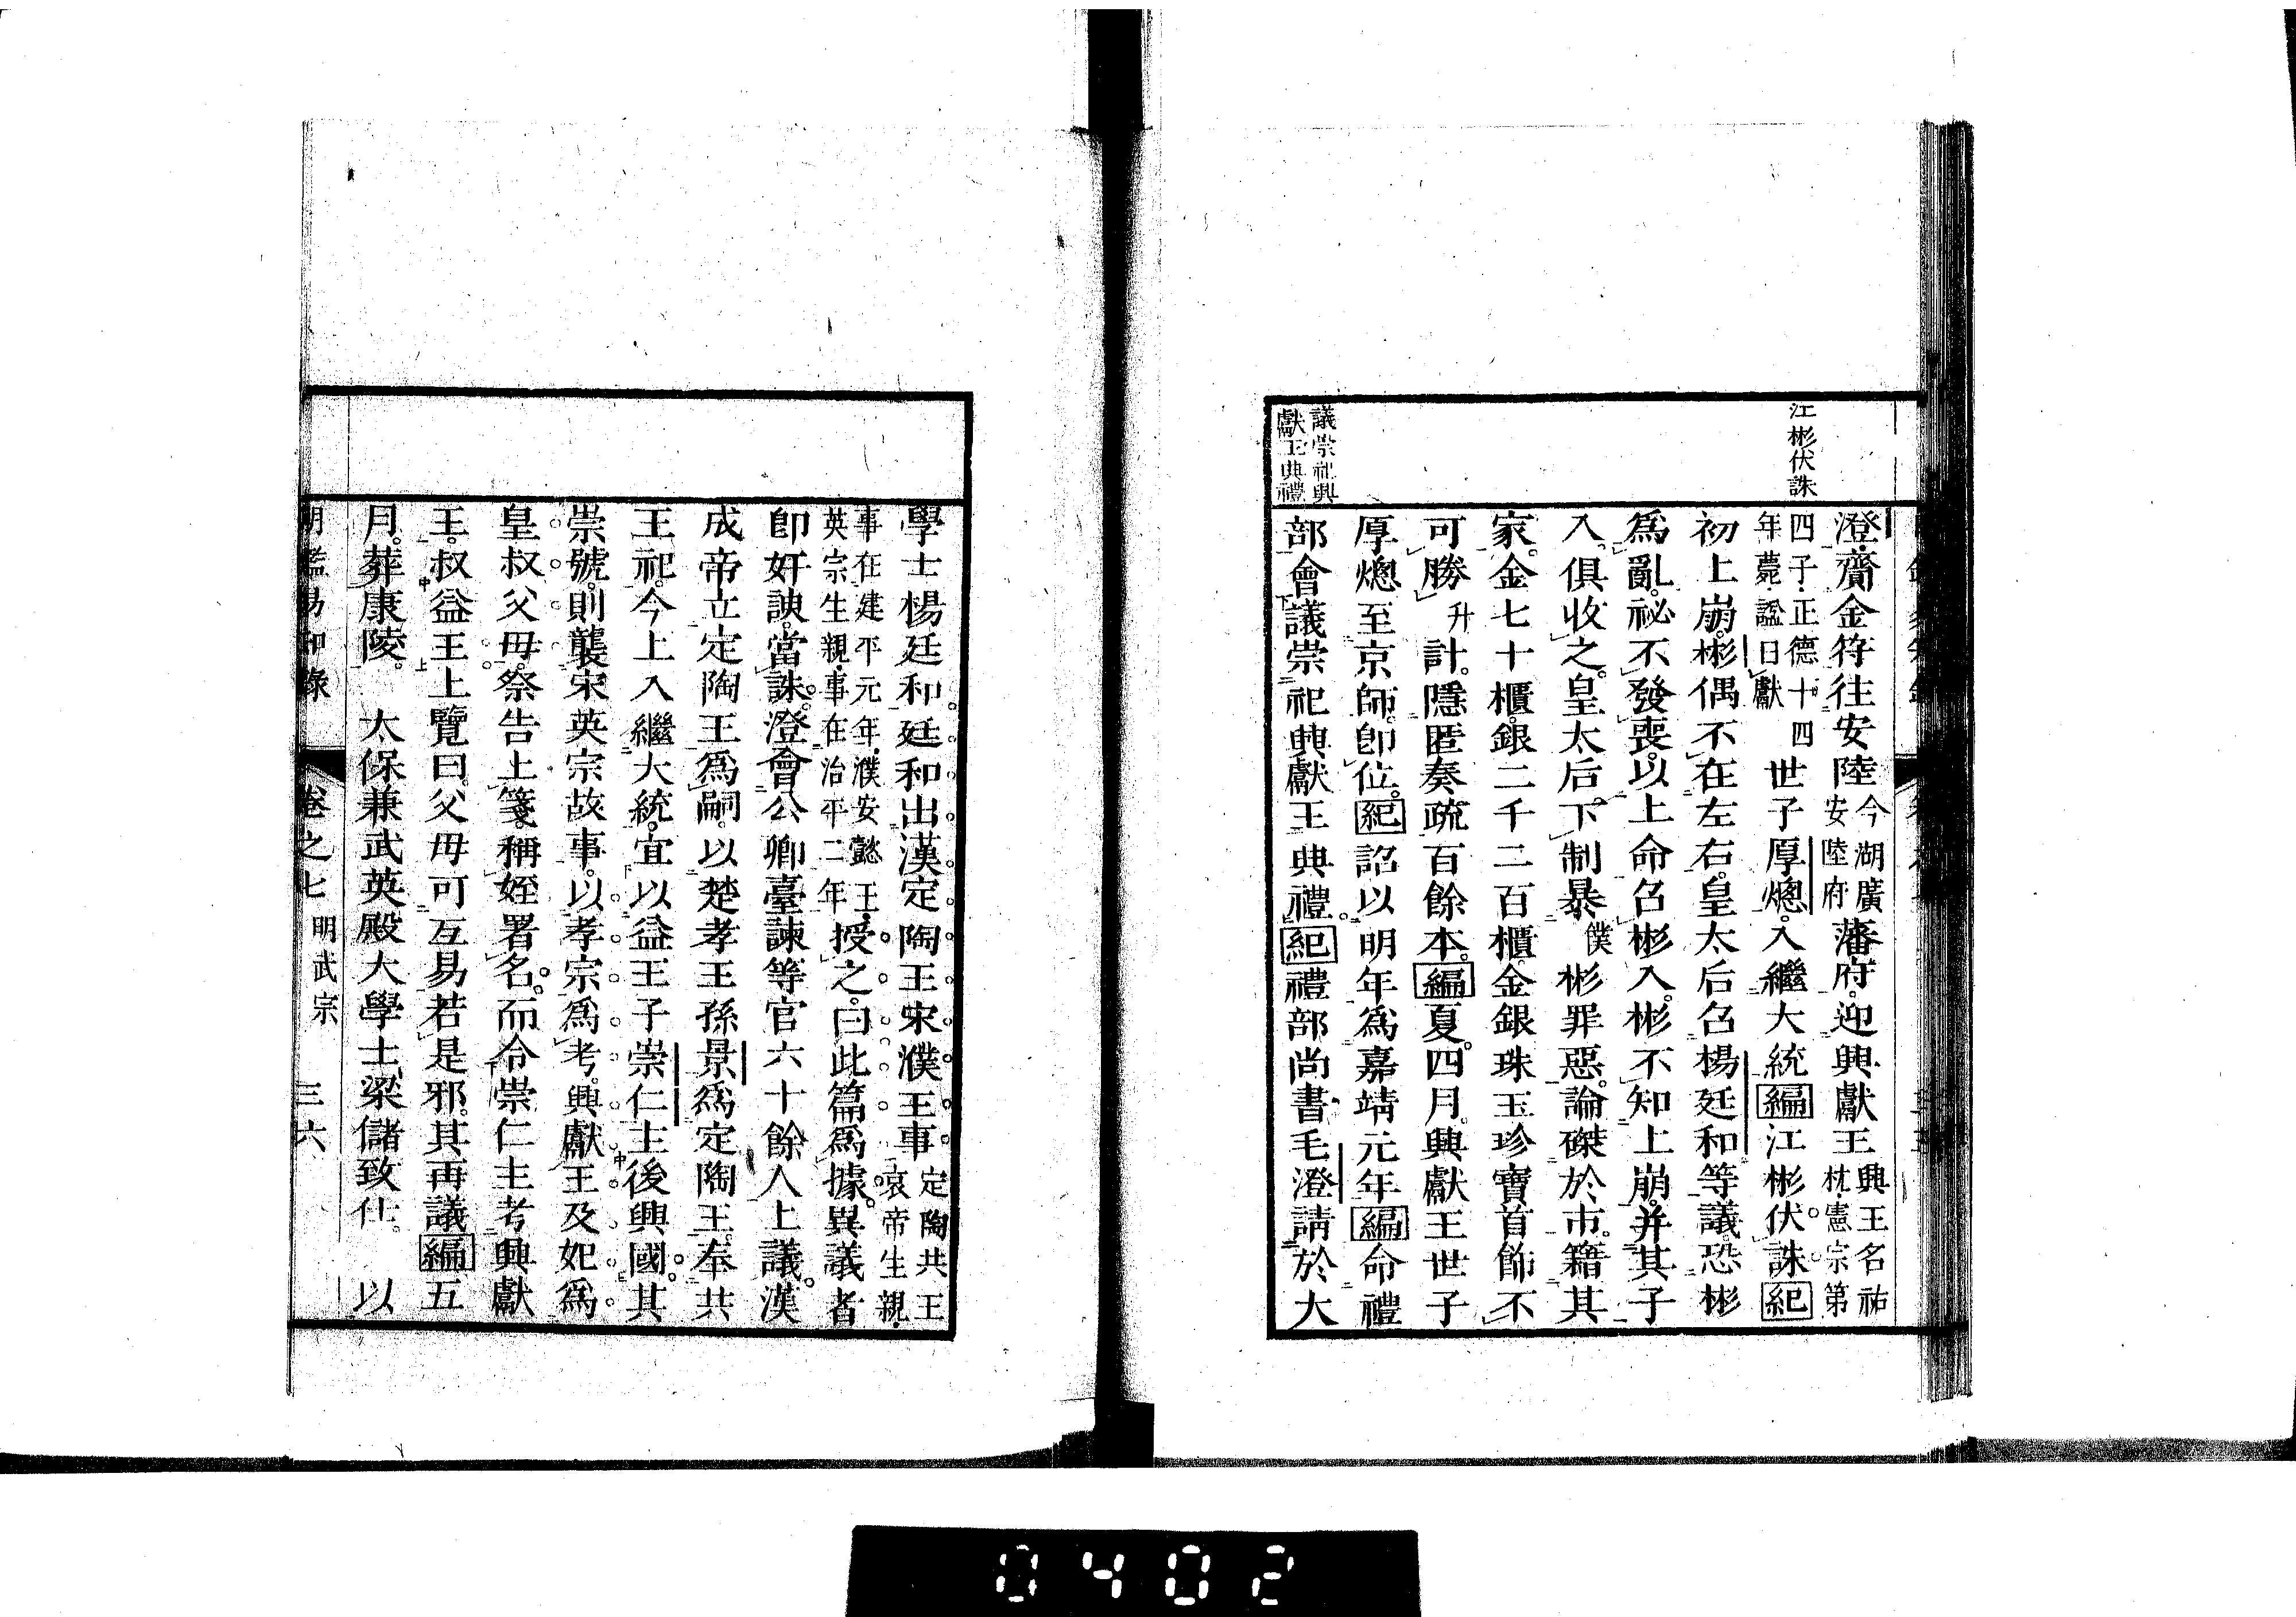 江彬伏誅
澄。齎金符往安陸今湖廣安陸府藩府。迎興獻王興王名祐杬。憲宗第
四子。正德十四年薨。諡曰獻世子厚熜。入繼大統編江彬伏誅紀
初上崩。彬偶不在左右。皇太后召楊廷和等議。恐彬
為亂。祕不發喪。以上命召彬入。彬不知上崩。并其子
入。俱收之。皇太后下制暴僕彬罪惡。論磔於市。籍其
家。金七十櫃。銀二千二百櫃。金銀珠玉珍寶首飾不
可勝升計。隱匿奏疏百餘本。編夏。四月。興獻王世子
厚熜至京師。卽位。紀詔以明年為嘉靖元年編命禮
議崇祀興
獻王典禮
部會議崇祀興獻王典禮。紀禮部尚書毛澄請於大
學士楊廷和。廷和出漢定陶王宋濮王事定陶共王哀帝生親。
事在建平元年。濮安懿王。英宗生親。事在治平二年授之。曰此篇爲據。異議者
卽奸諛。當誅。澄會公卿臺諫等官六十餘人上議。漢
成帝立定陶王爲嗣。以楚孝王孫景爲定陶王。奉共
王祀。今上入繼大統。宜以益王子崇仁主後興國。其
崇號。則襲宋英宗故事。以孝宗爲考。興獻王及妃爲
皇叔父母。祭告上箋。稱姪署名。而令崇仁主考興獻
王。叔益王上覽曰。父母可互易若是邪。其再議編五
月。葬康陵。　太保兼武英殿大學士梁儲致仕。　以
明鑑易知錄　卷之七　明武宗　三六
0402